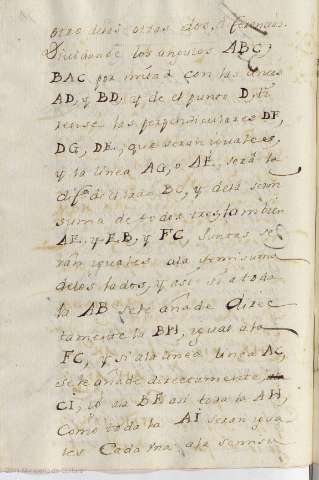 otro deesotras dos diferencias.
Dividanse los angulos ABC,
BAC por mitad con las lineas
AD, y BD, y de el punto D, ti
rense las perpendiculares DF,
DG, DE, que seran yguales,
y la linea AG, o AE, será la
difª de el lado BC, y dela semi
suma de todos tres, tambien
AE, y EB, y FC, juntas se
ran iguales ala semisuma
delos lados, y asi si a toda
la AB se le añade direc
tamente la BH, ygual ala
FC, y si ala linea AC,
se le añade directamente,
CI, asi toda la AH,
Como toda la AI seran ygua
les Cada una ala semisu